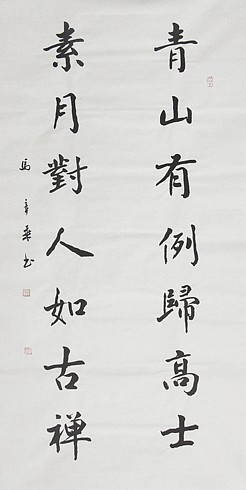 青山有例歸高士
素月對人如古禅